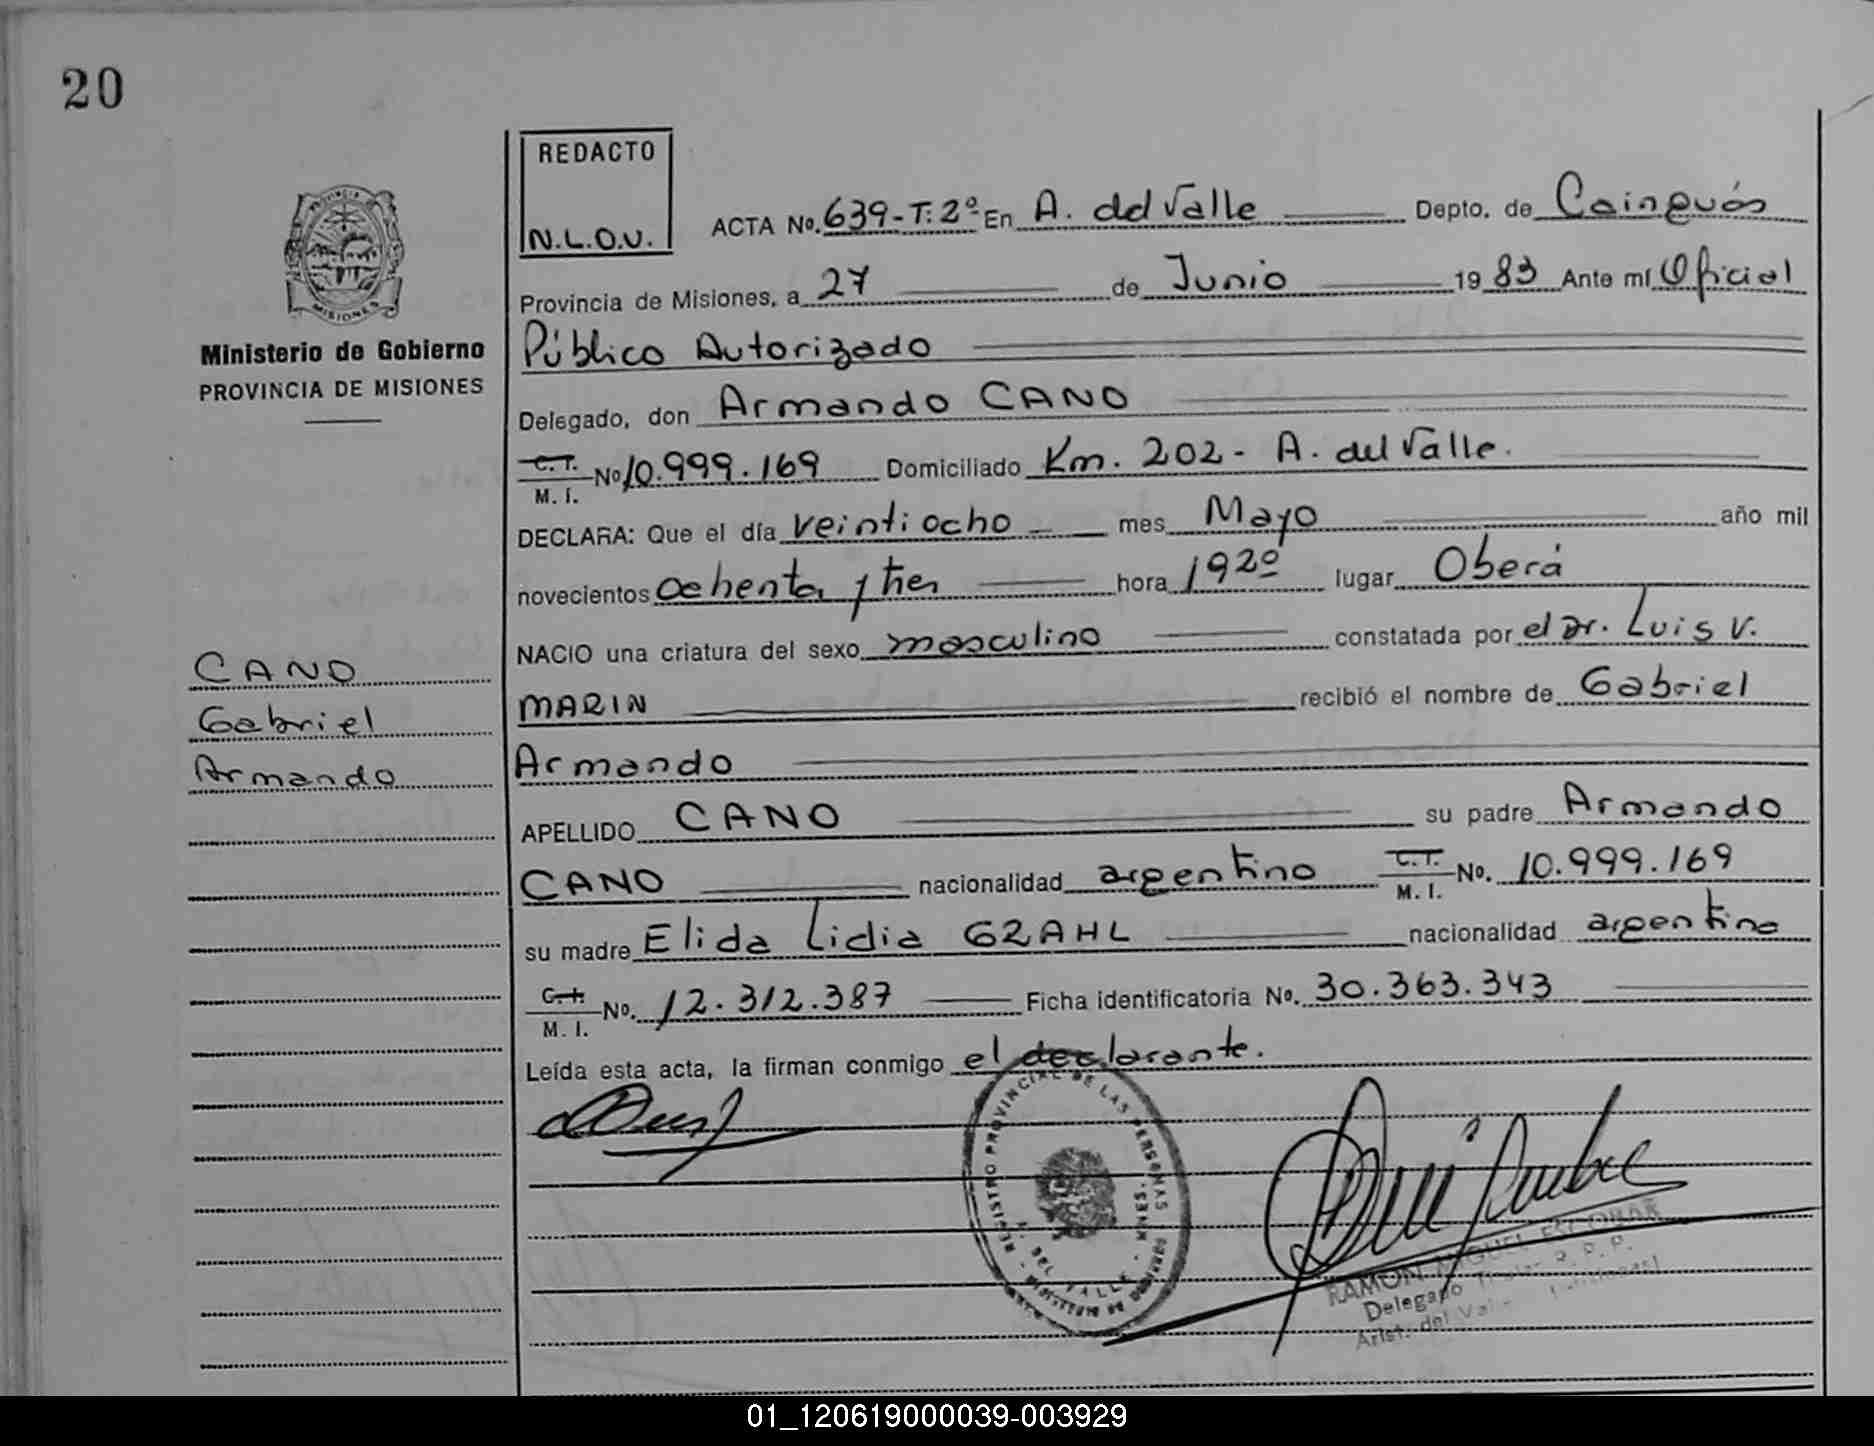 20
REDACTO
N.L.O.V.
ACTA No. 639-T: 2º En A. del Valle Depto. de Cainguás
Provincia de Misiones, a 27 de Junio 1983 Ante mí Oficial
Público Autorizado
Delegado, don Armando CANO
C.I. M. I. No 10.999.169 Domiciliado Km. 202 - A. del Valle.
DECLARA: Que el día veintiocho mes Mayo año mil
novecientos ochenta y tres hora 1920 lugar Oberá
NACIO una criatura del sexo masculino constatada por el Dr. Luis V.
MARIN recibió el nombre de Gabriel
Armando
APELLIDO CANO su padre Armando
CANO nacionalidad argentino C.I. M. I. No. 10.999.169
su madre Elida Lidia GRAHL nacionalidad argentina
C.I. M. I. No. 12.312.387 Ficha identificatoria No. 30.363.343
Leída esta acta, la firman conmigo el declarante.
MISIONES
Ministerio de Gobierno
PROVINCIA DE MISIONES
CANO
Gabriel
Armando
REGISTRO PROVINCIAL DE LAS PERSONAS
A. DEL VALLE
RAMON MIGUEL ESCOBAR
Delegado Titular R. P. P.
Arist. del Valle (Misiones)
01_120619000039-003929